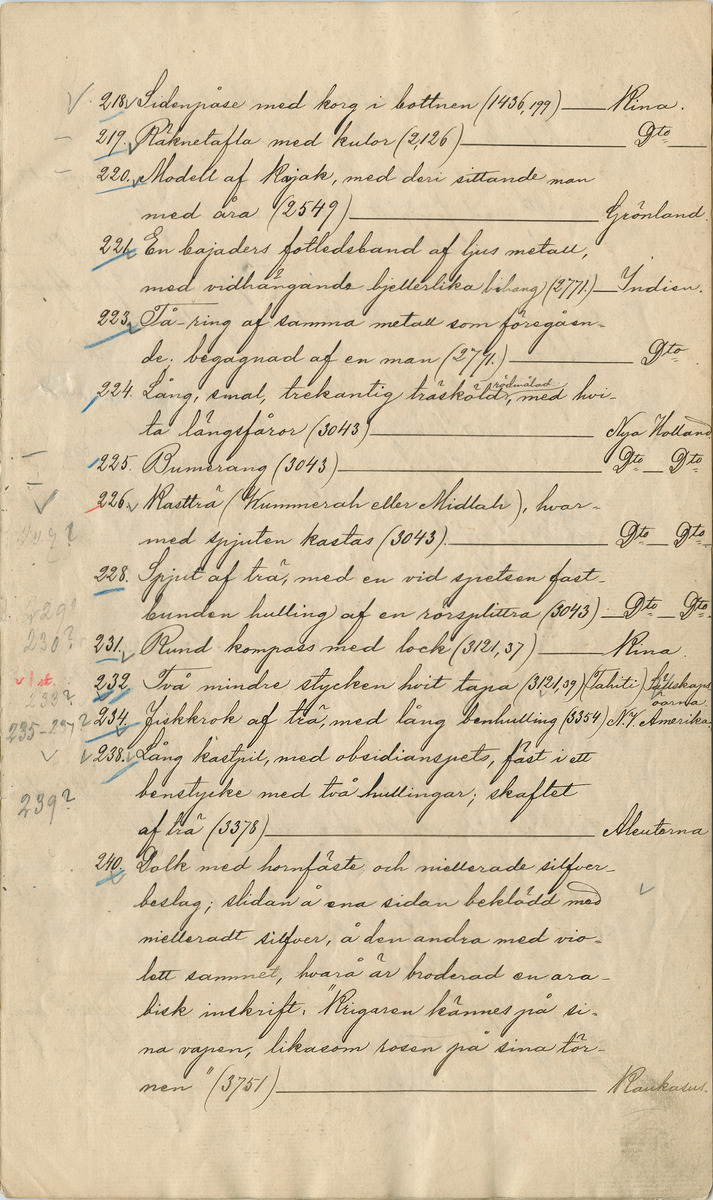 218. Sidenpåse med korg i bottnen (1436,199) — Kina.
219. Räknetafla med kulor (2,126) — Dto
220. Modell af Kajak, med deri sittande man
med åra (2549) — Grönland.
221. En bajaders fotledsband af ljus metall,
med vidhängande bjellerlika bihang (2771.) — Indien.
223. Tå-ring af samma metall som föregåen-
de; begagnad af en man (2771.) — Dto
224. Lång, smal, trekantig träsköld, rödmålad, med hvi-
ta långsfåror (3043) — Nya Holland
225. Bumerang (3043) — Dto — Dto
226. Kastträ (Wummerah eller Midlah), hvar-
med spjuten kastas (3043). — Dto — Dto
228. Spjut af trä, med en vid spetsen fast-
bunden hulling af en rörsplittra (3043) — Dto — Dto.
229?
230?
231. Rund kompass med lock (3121,37) — Kina.
1 st.
232. Två mindre stycken hvit tapa (3121,39) (Tahiti) Sällskaps
öarna.
233?
234. Fiskkrok af trä, med lång benhulling (3354) N.V. Amerika.
235-237?
238. Lång kastpil, med obsidianspets, fäst i ett
benstycke med två hullingar; skaftet
239?
af trä (3378) — Aleuterna
240. Dolk med hornfäste och niellerade silfver-
beslag; slidan å ena sidan beklädd med
nielleradt silfver, å den andra med vio-
lett sammet, hvarå är broderad en ara-
bisk inskrift: "Krigaren kännes på si-
na vapen, likasom rosen på sina tör-
nen" (3751) — Kaukasus.